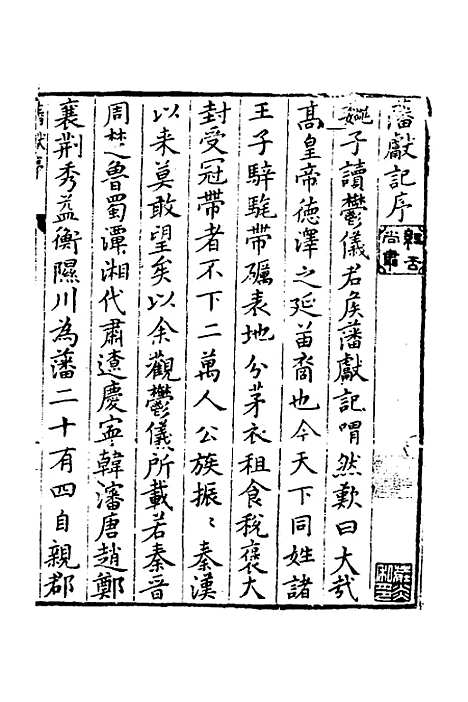 藩獻記序
姚子讀鬱儀君侯藩獻記喟然歎曰大哉
髙皇帝德澤之延苗裔也今天下同姓諸
王子騂髦帶礪表地分茅衣租食稅褒大
封受冠帶者不下二萬人公族振〻秦漢
以来莫敢望矣以余觀鬱儀所載若秦晉
周楚魯蜀潭湘代肅遼慶寧韓瀋唐趙鄭
襄荆秀益衡隰川為藩二十有四自親郡